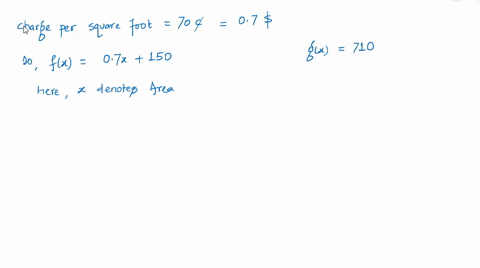 charge per square foot = 70 ¢ = 0.7 $
So, f(x) = 0.7x + 150
g(x) = 710
here, x denotes Area